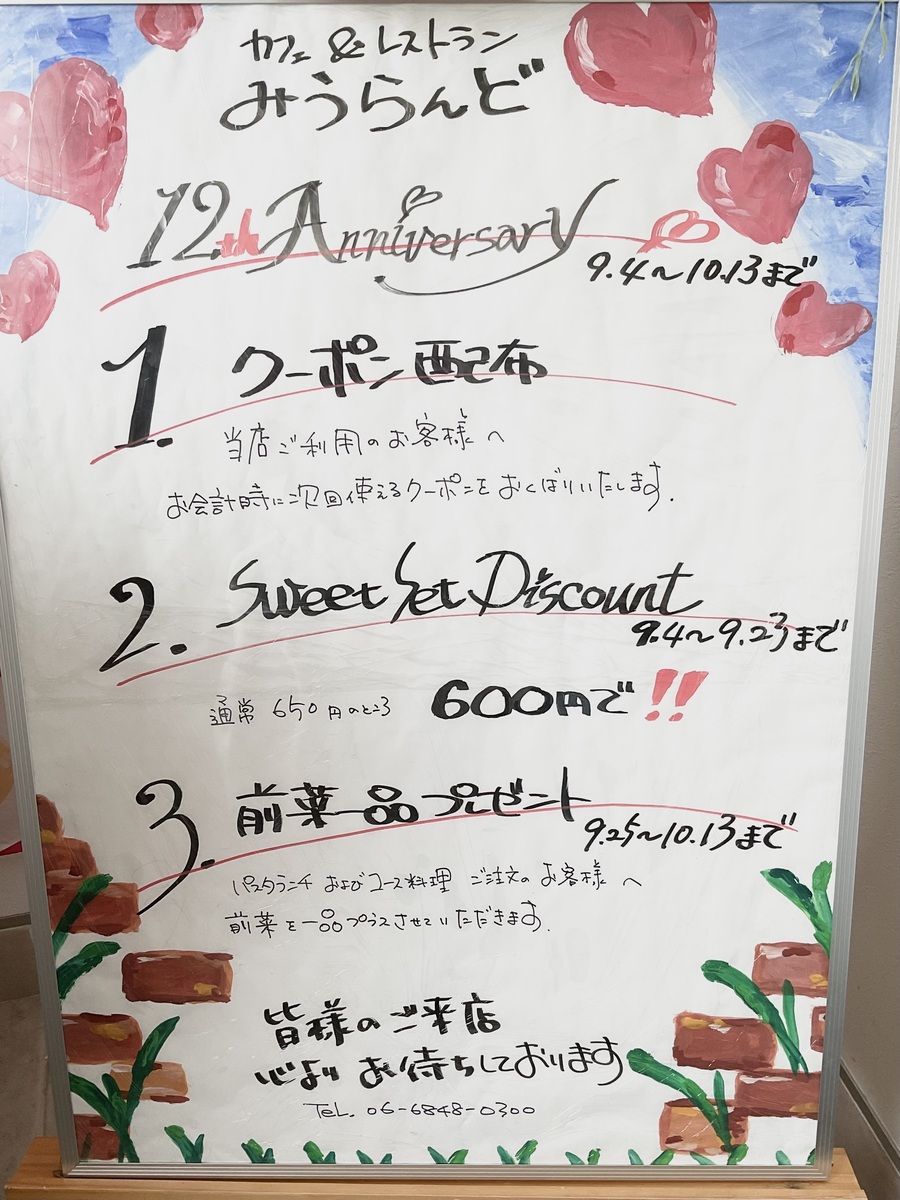 カフェ&レストラン
みうらんど
12th Anniversary
9.4〜10.13まで
1. クーポン配布
当店ご利用のお客様へ
お会計時に次回使えるクーポンをおくばりいたします.
2. Sweet Set Discount
9.4〜9.23まで
通常 650円のところ 600円で!!
3. 前菜一品プレゼント
9.25〜10.13まで
パスタランチ およびコース料理 ご注文の お客様へ
前菜を一品プラスさせていただきます.
皆様のご来店
心より お待ちしております
TeL. 06-6848-0300